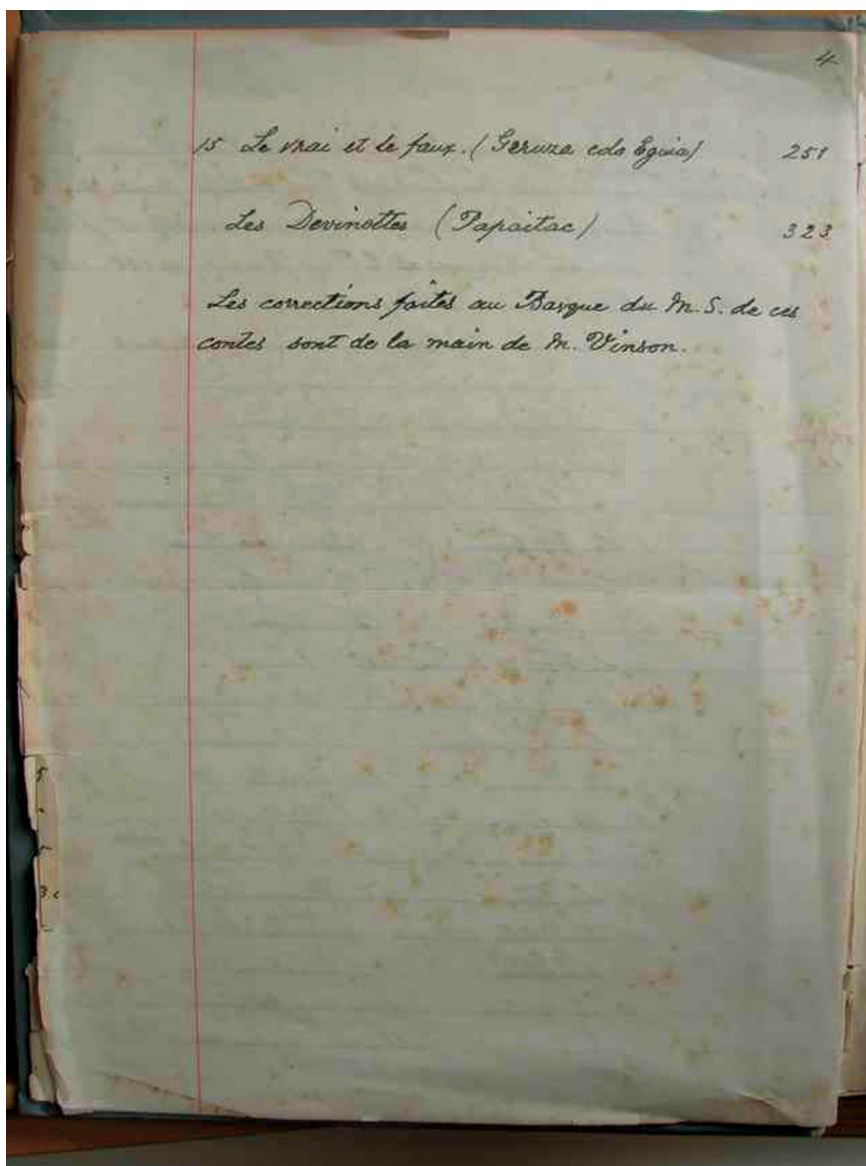 4
15 Le vrai et le faux. (Geruza edo Eguia) 251
Les Devinettes (Papaitac) 323
Les corrections faites au Basque du M.S. de ces
contes sont de la main de M. Vinson.